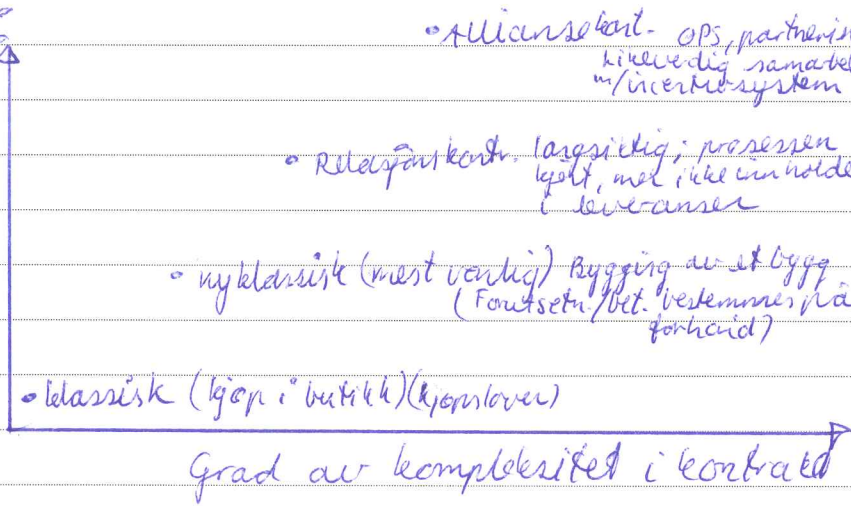 • Alliansekont. OPS, partneris
likeverdig samarbei
m/incentivsystem
• Relasjonskontr. langsiktig; prosessen
kjent, men ikke innholde
i leveransen
• nyklassisk (mest vanlig) Bygging av et bygg
(Forutsetn./bet. bestemmes på
forhånd)
• klassisk (kjøp i butikk) (kjøpslover)
Grad av kompleksitet i kontrakt